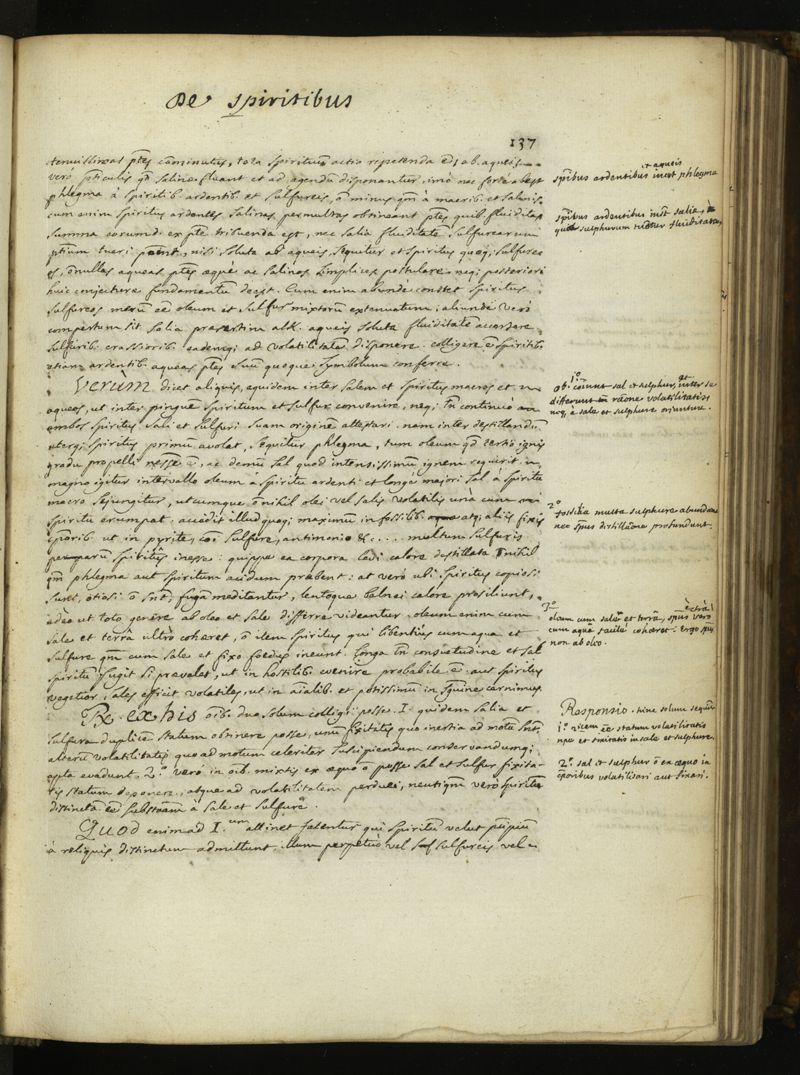 De spiritibus
137
tenuissimas ptes comminutus, tota Spirituum actio repetenda e; ab aqueis
vero pticulis qd Salina fluant et ad agendum disponantur, imo nec forte abest
phlegma à Spiritib ardentib et sulfureis, o minus qm à macris et salinis,
cum enim Spiritus ardentes salinas permultas obtineant ptes quib fluiditas
summa eorumd ex pte tribuenda est, nec salia fluiditatem sulfurearum
ptium tueri possint, nisi soluta ab aqueis, sequitur et spiritus quoq; sulfure
os, onullas aqueas ptes æque ac salinas simplices postulare. neq; posteriori
huic conjecturæ fundamentum deest. Cum enim abunde constet Spiritus
sulfureos merum ee oleum et sulfur mixtorum extenuatum; aliunde vero
compertum sit salia præsertim alk. aqueis soluta fluiditatem accersere
sulfurib. crassiorib. eademq; ad volatilitatem disponere. colligere e spiritib
etiam ardentib. aqueas ptes suum quoque symbolum conferre.
Verùm dicet aliquis, equidem inter salem et spiritus macros et
aqueos, ut inter pinguem Spiritum et sulfur convenire, neq; tn continuò
ambos spiritus sali et sulfuri suam originem attestari. nam inter destillandum
uterq; spiritus primum avolat, sequitur phlegma, tum oleum qd tertio ignis
gradu propelli necesse e, ac demum sal quod intensissimum ignem requirit. in
magno igitur intervallo oleum à spiritu ardenti et longe majori sal à spiritu
macro sejungitur, utcumque onihil olei vel salis volatilis una cum
spiritu erumpat. accedit illud quoq; maximum in fossilib. atq; aliis fixis
corporib. ut in pyrite, sulfure, antimonio &c.... multum sulfuris
perparum spiritus inesse: quippe ea corpora levi calore destillata onihil
qm phlegma aut spiritum acidum præbent: at vero ubi spiritus copiosi
sunt, otiosi o snt, fugam meditantur, lentoque balnei calore prosiliunt,
adeo ut toto genere ab oleo et sale differre videantur. oleum enim cum
sale et terra ultro cohæret, o item spiritus qui libentius cum aqua et
sulfure qm cum sale et fixo foedus ineunt. longa tn consuetudine et sal
spiritum fugit si prævalet, ut in hostilib. evenire probabile e: aut spiritus
vegetior sales efficit volatiles, ut in aialib. et potissimum in sanguine cernimus.
Rx. ex his oib. duo solum colligi posse. I. quidem salia et
sulfura duplicem statum obtinere posse, unum fixitatis quo inertia ad motum snt,
alterum volatilitatis quo ad motum celeriter suscipiendum conservandumq;
apta evadunt. 2.° vero in oib. mixtis ex æquo o posse sal et sulfur fixita-
tis statum deponere, atque ad volatilitatem perduci, neutiqm vero spiritus
distinctam ee substãam à sale et sulfure.
Quod enim ad I.um attinet fatentur qui spiritum velut pcipium
à reliquis distinctum admittunt. illum perpetuo vel sulfureis vel
spibus ardentibus inest et aqueis phlegma
spibus ardentibus inst salia,
quib sulphurum tuetur fluiditatem
ob. 1° coinne sal et sulphur et inter se
differunt in raõne volatilitatis
neq; à sale et sulphure oriuntur.
2° fossilia multa sulphure abundant
nec spus distillaõne profundunt.
3° oleum cum sale et terra, spus vero extra
cum aqua facile cohæret. ergo spus
non ab oleo.
Responsio. hinc solum sequi
1° ee statum volatilitatis
npe et fixitatis in sale et sulphure.
2.° sal et sulphur o ex æquo in
corporibus volatilisari aut fixari.